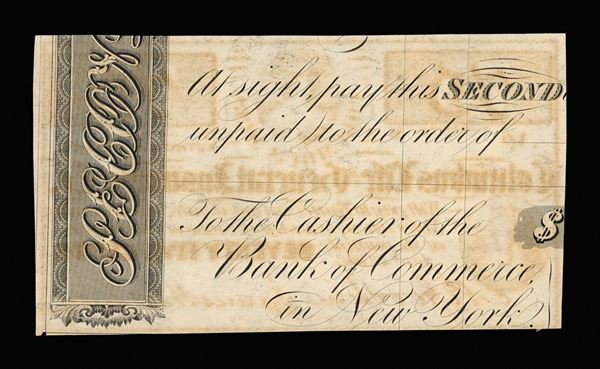 SECON
At sight, pay this SECOND
unpaid) to the order of
To the Cashier of the
Bank of Commerce,
in New York.
$